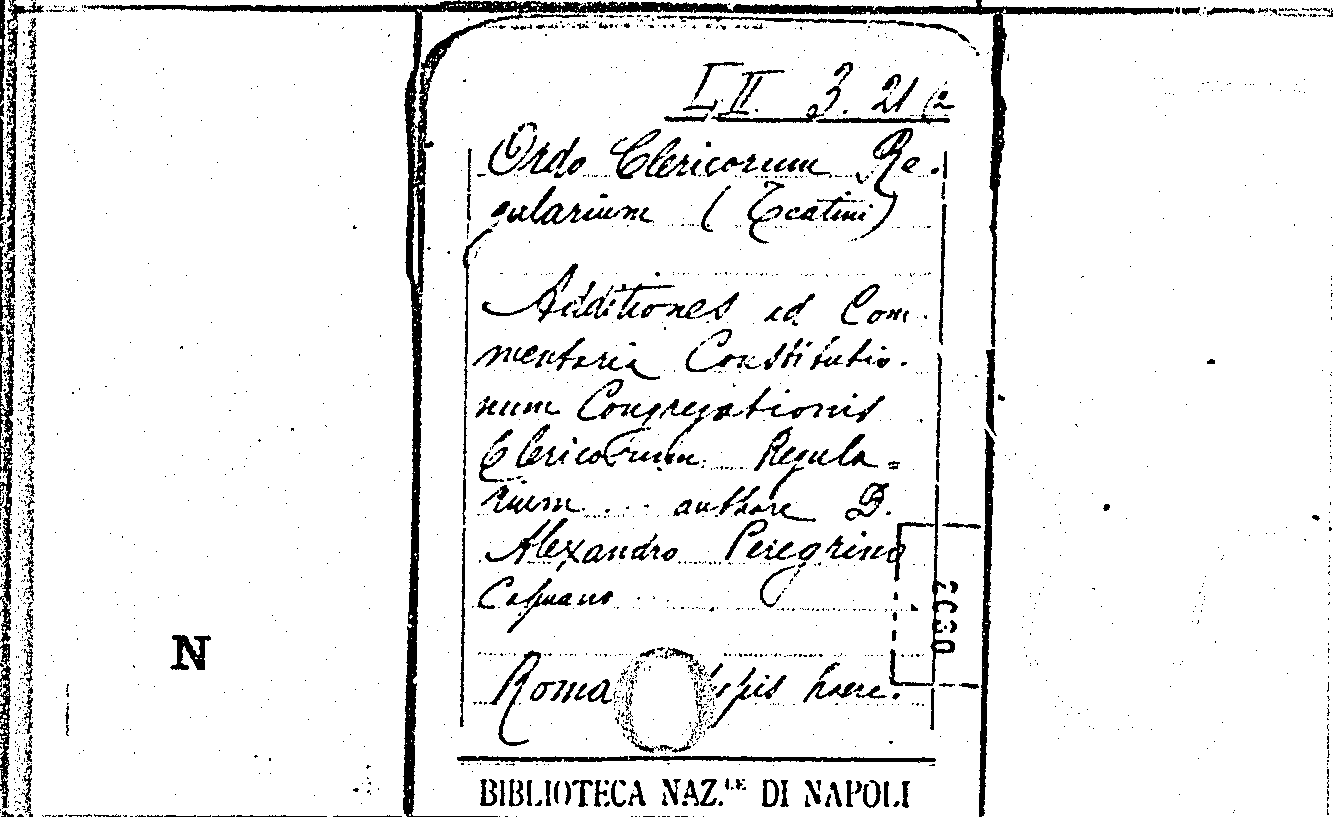 LII. 3. 21 (2
Ordo Clericorum Re-
gularium (Teatini)
Additiones ad Com-
mentaria Constitutio-
num Congregationis
Clericorum Regula=
rium ... authore D.
Alexandro Peregrino
Capuano
Roma typis haere.
N
BIBLIOTECA NAZ.LE DI NAPOLI